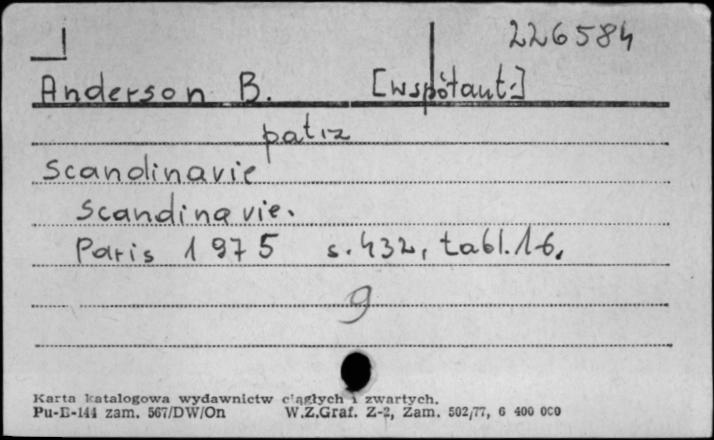 226584
Anderson B. [współaut.]
patrz
Scandinavie
Scandinavie.
Paris 1975 s. 432, tabl. 16.
9
Karta katalogowa wydawnictw ciągłych i zwartych.
Pu-B-144 zam. 567/DW/On W.Z.Graf. Z-2, Zam. 502/77, 6 400 000